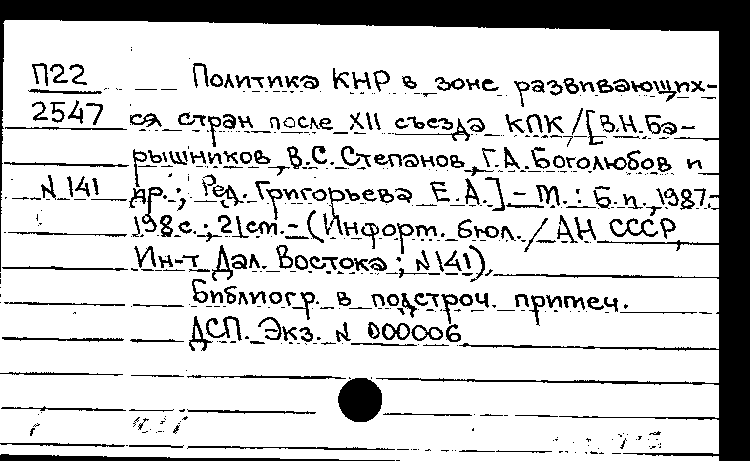 П22 Политика КНР в зоне развивающих-
2547 ся стран после XII съезда КПК/[В.Н.Ба-
рышников, В.С.Степанов, Г.А.Боголюбов и
N 141 др.; Ред. Григорьева Е.А.]-М.: Б.и., 1987.-
198с.; 21см.-(Информ. бюл./АН СССР,
Ин-т Дал. Востока; N141).
Библиогр. в подстроч. примеч.
ДСП. Экз. N 000006.